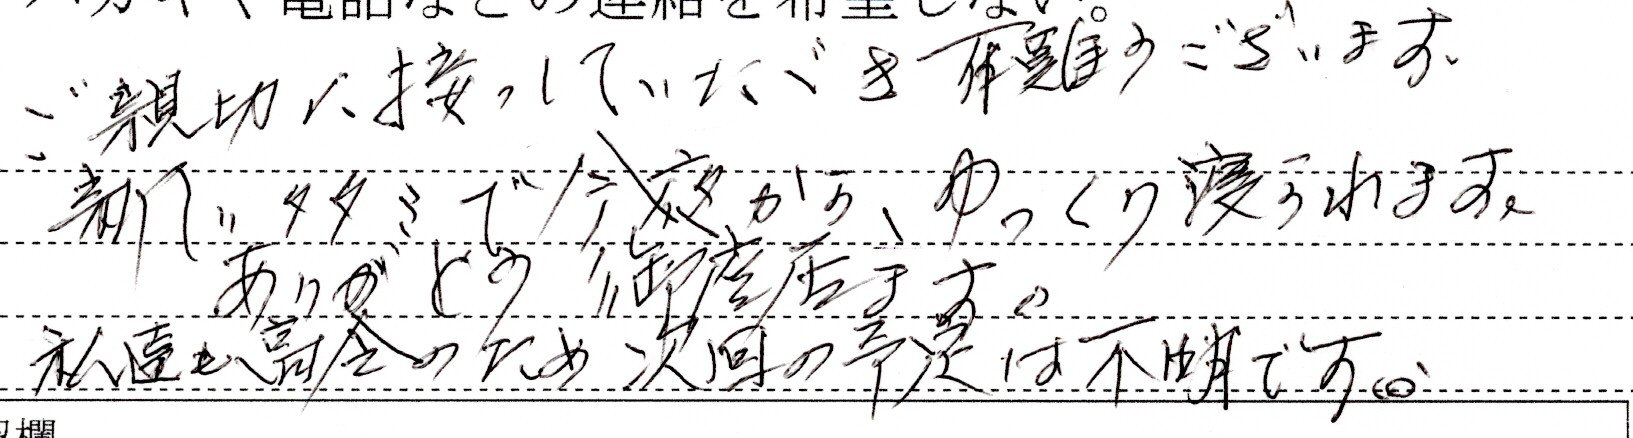 ハガキや電話などの連絡を希望しない。
ご親切に接っしていただき有難うございます。
新しいタタミで今夜から、ゆっくり寝られます。
ありがとう御座居ます。
私達も高令のため次回の予定は不明です。
報欄